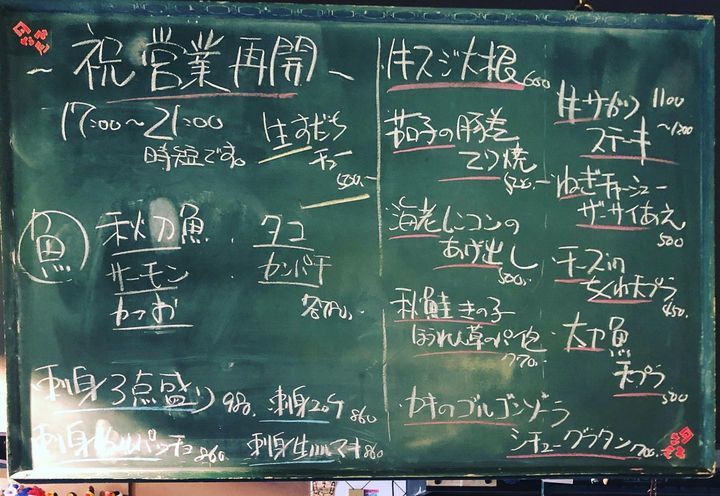 ~ 祝営業再開 ~
17:00~21:00
時短です。
生すだち
チュー
500.-
魚
秋刀魚 . タコ
サーモン . カンパチ
かつお
刺身3点盛り 980.
刺身カルパッチョ 860
牛スジ大根 600
茄子の豚巻
てり焼
海老レンコンの
あげ出し
500.-
秋鮭きの子
ほうれん草のパイ包
770.-
カキのゴルゴンゾラ
シチューグラタン 700.-
牛サガリ 1100
ステーキ ~1200
ねぎチャーシュー
ザーサイあえ
500
チーズin
ちくわ天プラ
450.
太刀魚
天プラ
500